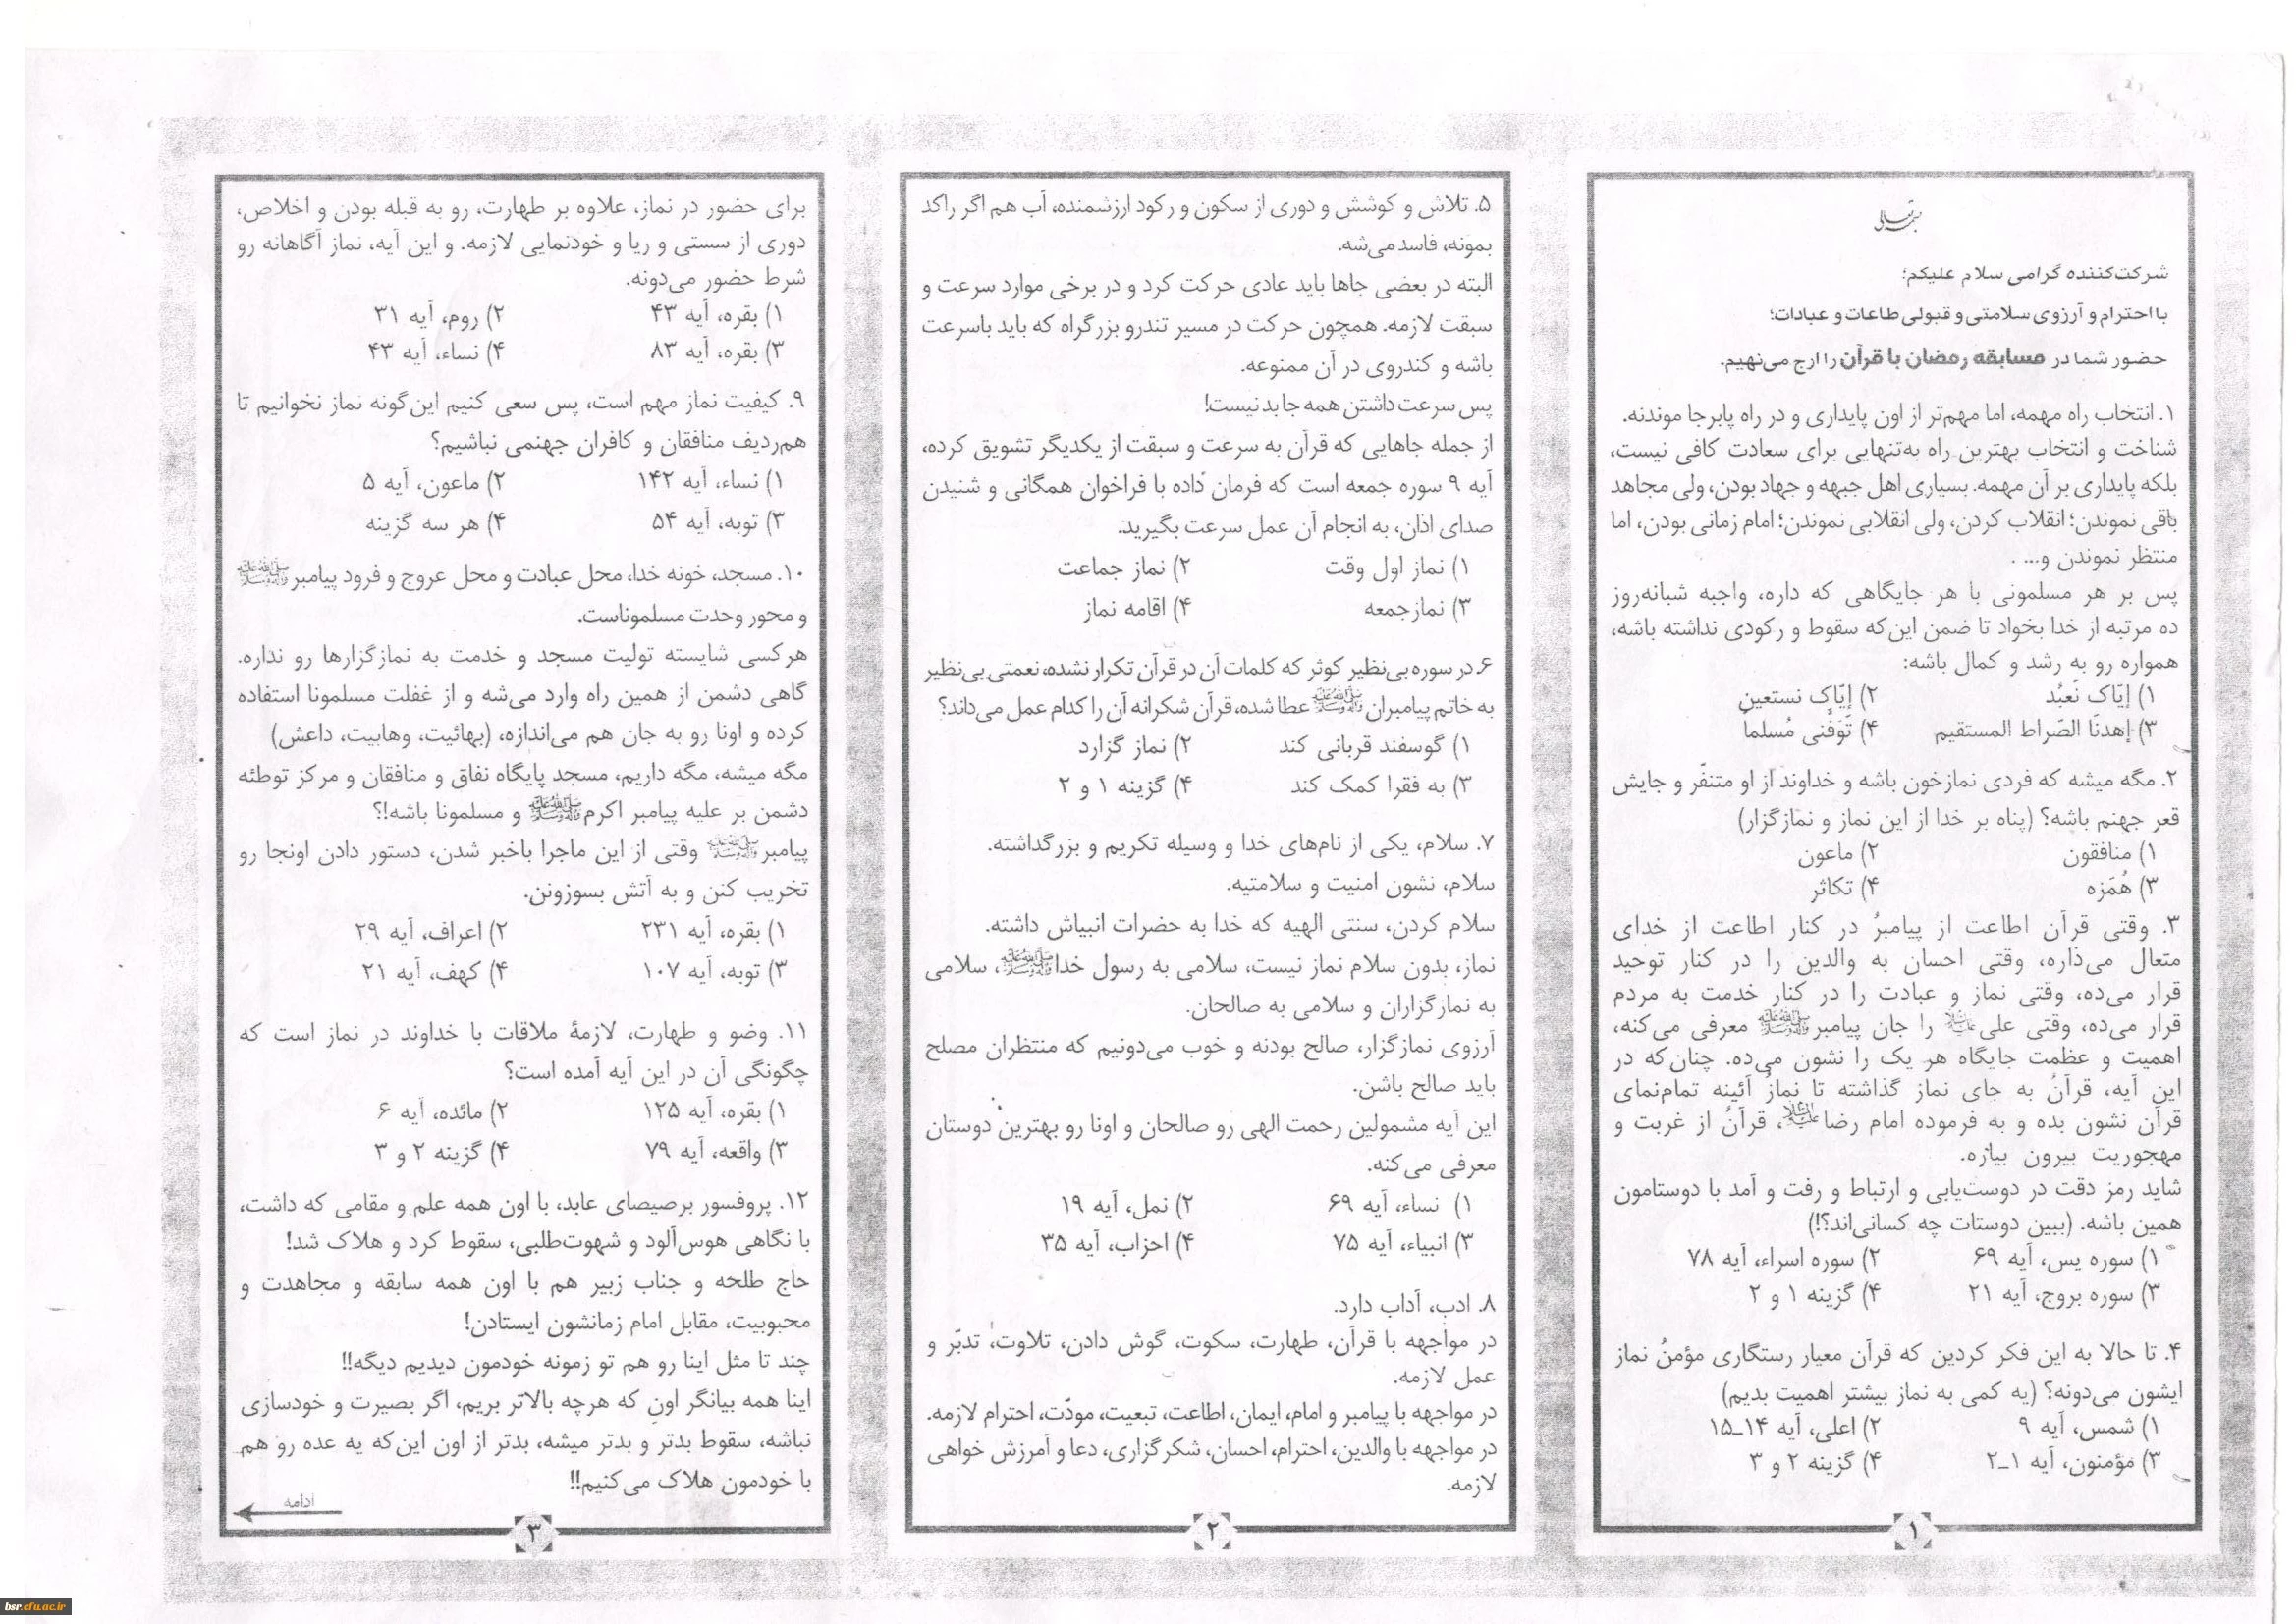 بسمه تعالی
شرکت‌کننده گرامی سلام علیکم؛
با احترام و آرزوی سلامتی و قبولی طاعات و عبادات؛
حضور شما در مسابقه رمضان با قرآن را ارج می‌نهیم.
۱. انتخاب راه مهمه، اما مهم‌تر از اون پایداری و در راه پابرجا موندنه.
شناخت و انتخاب بهترین راه به‌تنهایی برای سعادت کافی نیست،
بلکه پایداری بر آن مهمه. بسیاری اهل جبهه و جهاد بودن، ولی مجاهد
باقی نموندن؛ انقلاب کردن، ولی انقلابی نموندن؛ امام زمانی بودن، اما
منتظر نموندن و... .
پس بر هر مسلمونی با هر جایگاهی که داره، واجبه شبانه‌روز
ده مرتبه از خدا بخواد تا ضمن این‌که سقوط و رکودی نداشته باشه،
همواره رو به رشد و کمال باشه:
۱) إیّاکَ نَعبُد ۲) إیّاک نستعین
۳) إهدنَا الصّراط المستقیم ۴) تَوَفَّنی مُسلماً
۲. مگه میشه که فردی نمازخون باشه و خداوند از او متنفّر و جایش
قعر جهنم باشه؟ (پناه بر خدا از این نماز و نمازگزار)
۱) منافقون ۲) ماعون
۳) هُمَزه ۴) تکاثر
۳. وقتی قرآن اطاعت از پیامبرُ در کنار اطاعت از خدای
متعال می‌ذاره، وقتی احسان به والدین را در کنار توحید
قرار می‌ده، وقتی نماز و عبادت را در کنار خدمت به مردم
قرار می‌ده، وقتی علی علیه‌السلام را جان پیامبر ﷺ معرفی می‌کنه،
اهمیت و عظمت جایگاه هر یک را نشون می‌ده. چنان‌که در
این آیه، قرآنُ به جای نماز گذاشته تا نمازُ آئینه تمام‌نمای
قرآن نشون بده و به فرموده امام رضا علیه‌السلام، قرآنُ از غربت و
مهجوریت بیرون بیاره.
شاید رمز دقت در دوست‌یابی و ارتباط و رفت و آمد با دوستامون
همین باشه. (ببین دوستات چه کسانی‌اند؟!)
۱) سوره یس، آیه ۶۹ ۲) سوره اسراء، آیه ۷۸
۳) سوره بروج، آیه ۲۱ ۴) گزینه ۱ و ۲
۴. تا حالا به این فکر کردین که قرآن معیار رستگاری مؤمنُ نماز
ایشون می‌دونه؟ (یه کمی به نماز بیشتر اهمیت بدیم)
۱) شمس، آیه ۹ ۲) اعلی، آیه ۱۴ـ۱۵
۳) مؤمنون، آیه ۱ـ۲ ۴) گزینه ۲ و ۳
۱
۵. تلاش و کوشش و دوری از سکون و رکود ارزشمنده، آب هم اگر راکد
بمونه، فاسد می‌شه.
البته در بعضی جاها باید عادی حرکت کرد و در برخی موارد سرعت و
سبقت لازمه. همچون حرکت در مسیر تندرو بزرگراه که باید باسرعت
باشه و کندروی در آن ممنوعه.
پس سرعت داشتن همه جا بد نیست!
از جمله جاهایی که قرآن به سرعت و سبقت از یکدیگر تشویق کرده،
آیه ۹ سوره جمعه است که فرمان داده با فراخوان همگانی و شنیدن
صدای اذان، به انجام آن عمل سرعت بگیرید.
۱) نماز اول وقت ۲) نماز جماعت
۳) نمازجمعه ۴) اقامه نماز
۶. در سوره بی‌نظیر کوثر که کلمات آن در قرآن تکرار نشده، نعمتی بی‌نظیر
به خاتم پیامبران ﷺ عطا شده، قرآن شکرانه آن را کدام عمل می‌داند؟
۱) گوسفند قربانی کند ۲) نماز گزارد
۳) به فقرا کمک کند ۴) گزینه ۱ و ۲
۷. سلام، یکی از نام‌های خدا و وسیله تکریم و بزرگداشته.
سلام، نشون امنیت و سلامتیه.
سلام کردن، سنتی الهیه که خدا به حضرات انبیاش داشته.
نماز، بدون سلام نماز نیست، سلامی به رسول خدا ﷺ، سلامی
به نمازگزاران و سلامی به صالحان.
آرزوی نمازگزار، صالح بودنه و خوب می‌دونیم که منتظران مصلح
باید صالح باشن.
این آیه مشمولین رحمت الهی رو صالحان و اونا رو بهترین دوستان
معرفی می‌کنه.
۱) نساء، آیه ۶۹ ۲) نمل، آیه ۱۹
۳) انبیاء، آیه ۷۵ ۴) احزاب، آیه ۳۵
۸. ادب، آداب دارد.
در مواجهه با قرآن، طهارت، سکوت، گوش دادن، تلاوت، تدبّر و
عمل لازمه.
در مواجهه با پیامبر و امام، ایمان، اطاعت، تبعیت، مودّت، احترام لازمه.
در مواجهه با والدین، احترام، احسان، شکرگزاری، دعا و آمرزش خواهی
لازمه.
۲
برای حضور در نماز، علاوه بر طهارت، رو به قبله بودن و اخلاص،
دوری از سستی و ریا و خودنمایی لازمه. و این آیه، نماز آگاهانه رو
شرط حضور می‌دونه.
۱) بقره، آیه ۴۳ ۲) روم، آیه ۳۱
۳) بقره، آیه ۸۳ ۴) نساء، آیه ۴۳
۹. کیفیت نماز مهم است، پس سعی کنیم این‌گونه نماز نخوانیم تا
هم‌ردیف منافقان و کافران جهنمی نباشیم؟
۱) نساء، آیه ۱۴۲ ۲) ماعون، آیه ۵
۳) توبه، آیه ۵۴ ۴) هر سه گزینه
۱۰. مسجد، خونه خدا، محل عبادت و محل عروج و فرود پیامبر ﷺ
و محور وحدت مسلموناست.
هرکسی شایسته تولیت مسجد و خدمت به نمازگزارها رو نداره.
گاهی دشمن از همین راه وارد می‌شه و از غفلت مسلمونا استفاده
کرده و اونا رو به جان هم می‌اندازه، (بهائیت، وهابیت، داعش)
مگه میشه، مگه داریم، مسجد پایگاه نفاق و منافقان و مرکز توطئه
دشمن بر علیه پیامبر اکرم ﷺ و مسلمونا باشه!؟
پیامبر ﷺ وقتی از این ماجرا باخبر شدن، دستور دادن اونجا رو
تخریب کنن و به آتش بسوزونن.
۱) بقره، آیه ۲۳۱ ۲) اعراف، آیه ۲۹
۳) توبه، آیه ۱۰۷ ۴) کهف، آیه ۲۱
۱۱. وضو و طهارت، لازمهٔ ملاقات با خداوند در نماز است که
چگونگی آن در این آیه آمده است؟
۱) بقره، آیه ۱۲۵ ۲) مائده، آیه ۶
۳) واقعه، آیه ۷۹ ۴) گزینه ۲ و ۳
۱۲. پروفسور برصیصای عابد، با اون همه علم و مقامی که داشت،
با نگاهی هوس‌آلود و شهوت‌طلبی، سقوط کرد و هلاک شد!
حاج طلحه و جناب زبیر هم با اون همه سابقه و مجاهدت و
محبوبیت، مقابل امام زمانشون ایستادن!
چند تا مثل اینا رو هم تو زمونه خودمون دیدیم دیگه!!
اینا همه بیانگر اونِ که هرچه بالاتر بریم، اگر بصیرت و خودسازی
نباشه، سقوط بدتر و بدتر میشه، بدتر از اون این‌که یه عده رو هم
با خودمون هلاک می‌کنیم!!
ادامه
۳
bsr.cfu.ac.ir